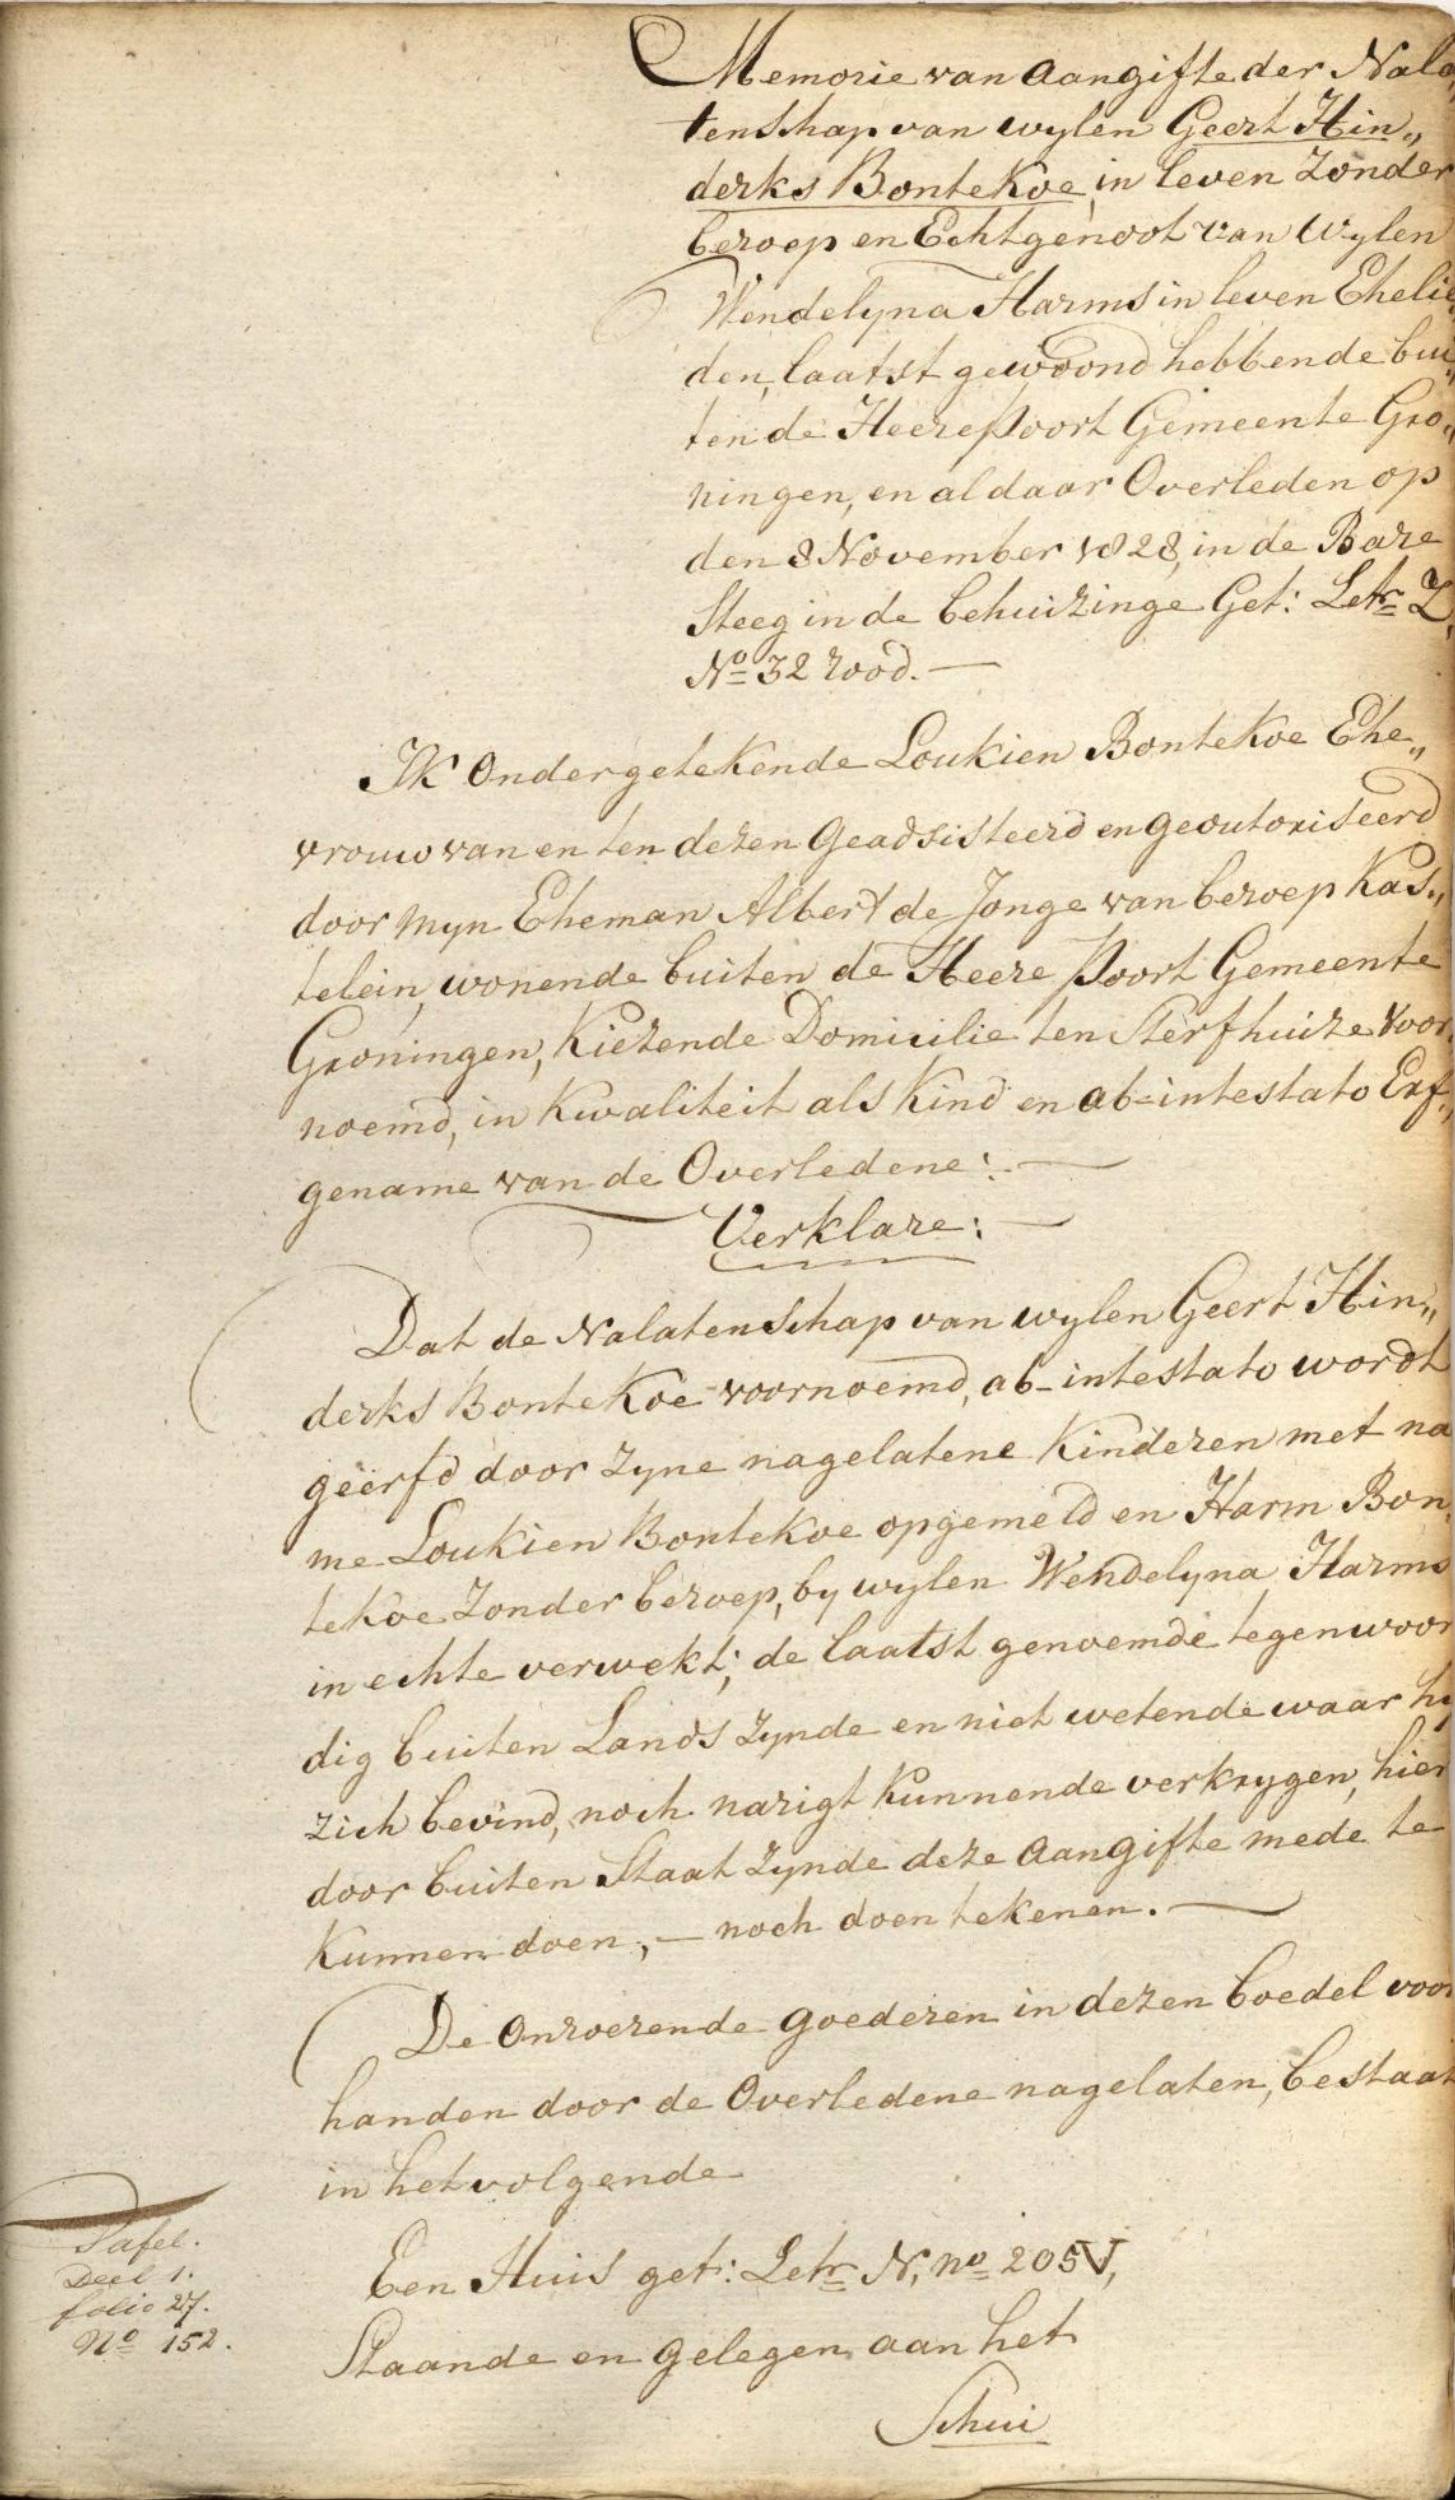 Memorie van Aangifte der Nala„
tenschap van wylen Geert Hin„
derks Bontekoe, in leven Zonder
beroep en Echtgenoot van Wylen
Wendelyna Harms in leven Ehelie„
den, laatst gewoond hebbende bui„
ten de Heerepoort Gemeente Gro„
ningen, en aldaar Overleden op
den 8 November 1828, in de Bare
Steeg in de behuizinge Get: Letr Z,
No 32 rood. —
Ik Ondergetekende Loukien Bontekoe Ehe„
vrouw van en ten dezen Geadsisteerd en geoutoriseerd
door myn Eheman Albert de Jonge van beroep Kas„
telein, wonende buiten de Heere Poort Gemeente
Groningen, Kiezende Domicilie ten Sterfhuize Voor
noemd, in Kwaliteit als Kind en ab-intestato Erf„
gename van de Overledene: —
Verklare: —
Dat de Nalatenschap van wylen Geert Hin„
derks Bontekoe voornoemd, ab-intestato wordt
geërfd door Zyne nagelatene Kinderen met na
me Loukien Bontekoe opgemeld en Harm Bon
tekoe Zonder beroep, by wylen Wendelyna Harms
in echte verwekt; de laatst genoemde tegenwoor
dig buiten Lands Zynde en niet wetende waar hy
zich bevind, noch narigt Kunnende verkrygen, hier
door buiten Staat Zynde deze Aangifte mede te
Kunnen doen, — noch doen tekenen. —
De Onroerende goederen in dezen boedel voor
handen door de Overledene nagelaten, bestaat
in het volgende
Een Huis get: Letr N, no 205 V,
Staande en gelegen aan het
Schui
Tafel.
Deel 1.
folio 27.
No 152.